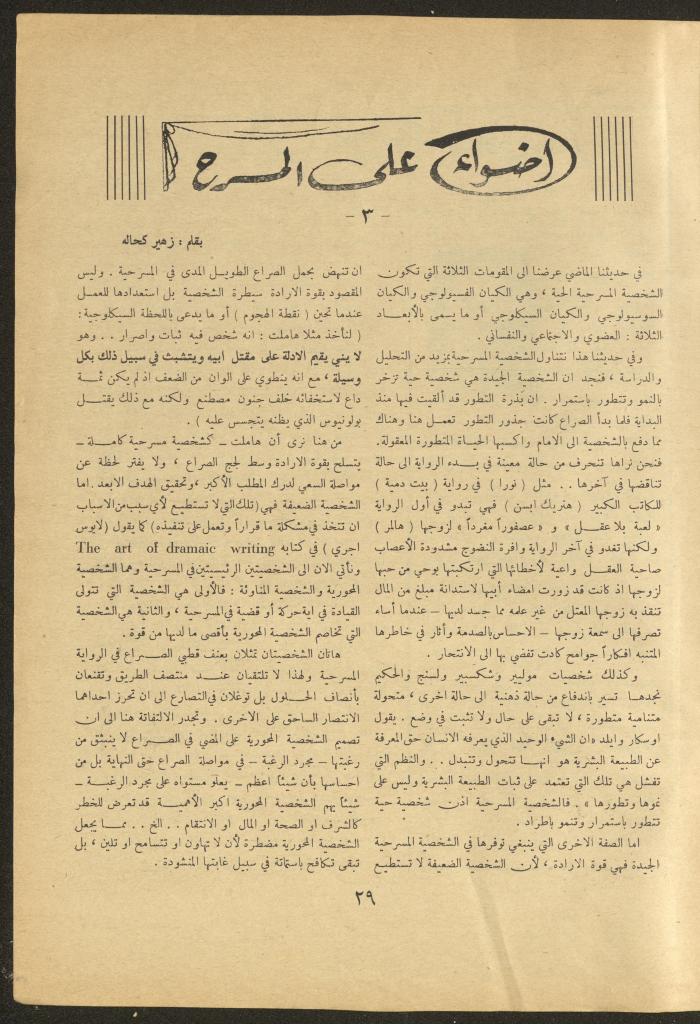 اضواء على المسرح
- ٣ -
بقلم : زهير كحاله
في حديثنا الماضي عرضنا الى المقومات الثلاثة التي تكون
الشخصية المسرحية الحية ، وهي الكيان الفسيولوجي والكيان
السوسيولوجي والكيان السيكلوجي أو ما يسمى بالأبعاد
الثلاثة : العضوي والاجتماعي والنفساني .
وفي حديثنا هذا نتناول الشخصية المسرحية بمزيد من التحليل
والدراسة ، فنجد ان الشخصية الجيدة هي شخصية حية تزخر
بالنمو وتتطور باستمرار . ان بذرة التطور قد ألقيت فيها منذ
البداية فلما بدأ الصراع كانت جذور التطور تعمل هنا وهناك
مما دفع بالشخصية الى الامام واكسبها الحياة المتطورة المعقولة.
فنحن نراها تنحرف من حالة معينة في بدء الرواية الى حالة
تناقضها في آخرها . . مثل ( نورا ) في رواية ( بيت دمية )
للكاتب الكبير ( هنريك ابسن ) فهي تبدو في أول الرواية
« لعبة بلا عقل » و « عصفوراً مغرداً » لزوجها ( هالمر )
ولكنها تغدو في آخر الرواية وافرة النضوج مشدودة الأعصاب
صاحية العقل واعية لأخطائها التي ارتكبتها بوحي من حبها
لزوجها اذ كانت قد زورت امضاء أبيها لاستدانة مبلغ من المال
تنقذ به زوجها المعتل من غير علمه مما جسد لديها - عندما أساء
تصرفها الى سمعة زوجها - الاحساس بالصدمة وأثار في خاطرها
المتنبه افكاراً جوامح كادت تفضي بها الى الانتحار .
وكذلك شخصيات موليير وشكسبير ولسنج والحكيم
نجدها تسير باندفاع من حالة ذهنية الى حالة اخرى ، متحولة
متنامية متطورة ، لا تبقى على حال ولا تثبت في وضع . يقول
اوسكار وايلد «ان الشيء الوحيد الذي يعرفه الانسان حق المعرفة
عن الطبيعة البشرية هو انها تتحول وتتبدل . . والنظم التي
تفشل هي تلك التي تعتمد على ثبات الطبيعة البشرية وليس على
نموها وتطورها » . فالشخصية المسرحية اذن شخصية حية
تتطور باستمرار وتنمو باطراد .
اما الصفة الاخرى التي ينبغي توفرها في الشخصية المسرحية
الجيدة فهي قوة الارادة ، لأن الشخصية الضعيفة لا تستطيع
ان تنهض بحمل الصراع الطويل المدى في المسرحية . وليس
المقصود بقوة الارادة سيطرة الشخصية بل استعدادها للعمل
عندما تحين ( نقطة الهجوم ) أو ما يدعى باللحظة السيكلوجية:
( لنأخذ مثلا هاملت : انه شخص فيه ثبات واصرار . . وهو
لا يني يقيم الادلة على مقتل ابيه ويتشبث في سبيل ذلك بكل
وسيلة ، مع انه ينطوي على الوان من الضعف اذ لم يكن ثمة
داع لاستخفائه خلف جنون مصطنع ولكنه مع ذلك يقتل
بولونيوس الذي يظنه يتجسس عليه ) .
من هنا نرى أن هاملت - كشخصية مسرحية كاملة -
يتسلح بقوة الارادة وسط لجج الصراع ، ولا يفتر لحظة عن
مواصلة السعي لدرك المطلب الأكبر ، وتحقيق الهدف الابعد. اما
الشخصية الضعيفة فهي (تلك التي لا تستطيع لأي سبب من الاسباب
ان تتخذ في مشكلة ما قراراً وتعمل على تنفيذه) كما يقول (لايوس
اجري ) في كتابه The art of dramaic writing
ونأتي الان الى الشخصيتين الرئيسيتين في المسرحية وهما الشخصية
المحورية والشخصية المناوئة : فالأولى هي الشخصية التي تتولى
القيادة في اية حركة أو قضية في المسرحية ، والثانية هي الشخصية
التي تخاصم الشخصية المحورية بأقصى ما لديها من قوة .
هاتان الشخصيتان تمثلان بعنف قطبي الصراع في الرواية
المسرحية ولهذا لا تلتقيان عند منتصف الطريق وتقنعان
بأنصاف الحلول بل توغلان في التصارع الى ان تحرز احداهما
الانتصار الساحق على الاخرى . وتجدر الالتفاتة هنا الى ان
تصميم الشخصية المحورية على المضي في الصراع لا ينبثق من
رغبتها - مجرد الرغبة - في مواصلة الصراع حتى النهاية بل من
احساسها بأن شيئاً اعظم - يعلو مستواه على مجرد الرغبة -
شيئاً يهم الشخصية المحورية اكبر الأهمية قد تعرض للخطر
كالشرف او الصحة او المال او الانتقام . . الخ . . مما يجعل
الشخصية المحورية مضطرة لأن لا تهاون او تتسامح او تلين ، بل
تبقى تكافح باستماتة في سبيل غايتها المنشودة .
٢٩